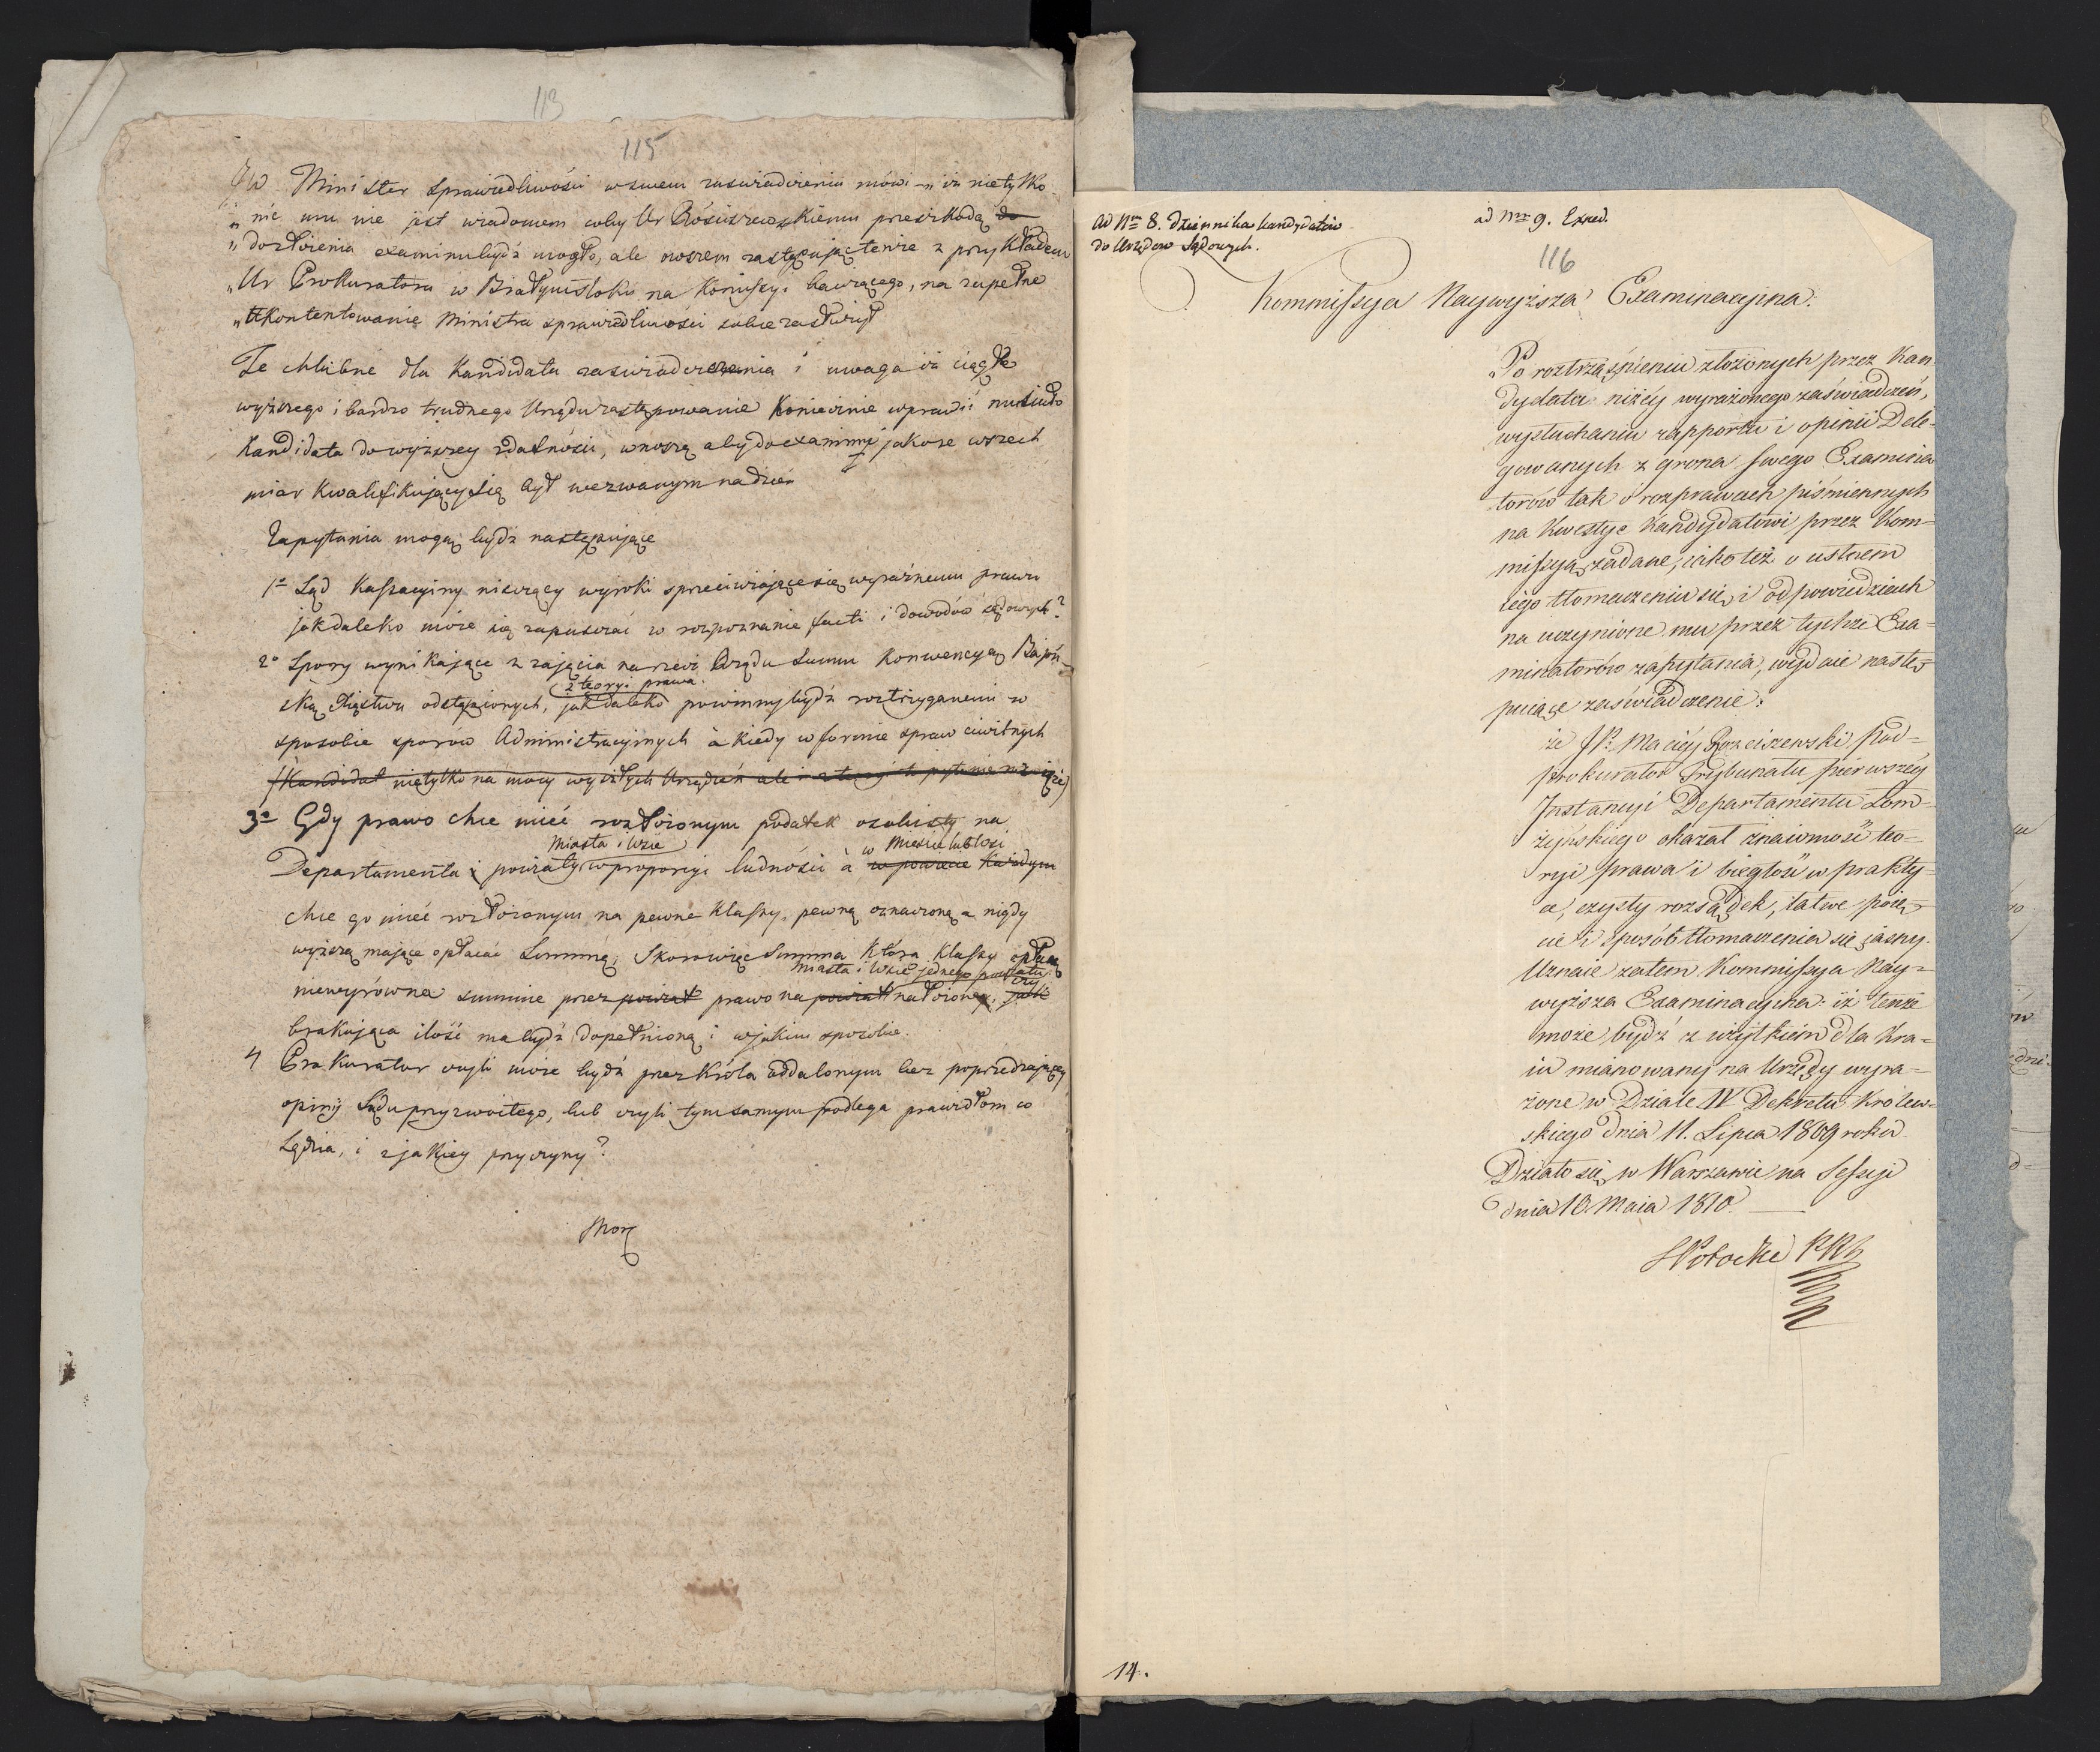 113
115
JW Minister Sprawiedliwości w swem zaświadczeniu mówi „iż nietylko
„nic mu nie jest wiadomem coby Ur Rościszewskiemu przeszkodą do
„dozłożenia examinu bydź mogło, ale owszem zastępując tenże z przykładem
„Ur Prokuratora w Białymstoku na Komissyi bawiącego, na zupełne
„Ukontentowanie Ministra sprawiedliwości sobie zasłużył
Te chlubne dla Kandidata zaswiadczenia i uwaga iż ciągłe
wyższego i bardzo trudnego Urzędu zastępowanie koniecznie wprawić musiało
Kandidata do wyższey zdatności, wnoszą aby do examinu jako ze wszech
miar kwalifikujący się był wezwanym na dzień
Zapytania mogą bydź następujące
1º Sąd Kassacyiny niszczący wyroki sprzeciwiające się wyraźnemu prawu
jak daleko może się zapuszczać w rozpoznanie facti i dowodów sądowych?
2º Spory wynikające z zajęcia na rzecz Rządu Summ Konwencyą Bajoń-
z teoryi prawa
ską Xięstwu odstąpionych, jak daleko powinny bydź roztrzyganemi w
sposobie sporów Administracyjnych à kiedy w formie spraw ciwilnych
(Kandidat nietylko na mocy wyszłych Urządzeń ale i z teoryi to pytanie
3º Gdy prawo chce mieć rozłożonym podatek osobisty na
Miasta i Wsie w Mieście lub Wsi
Departamenta i powiaty w proporcyi ludności à w powiecie każdym
chce go mieć rozłożonym na pewne Klassy, pewną oznaczoną a nigdy
wyższą mające opłacać Summę; Skoro więc Summa którą Klassy opłacą
Miasta i Wsie jednego powiatu czy
niewyrówna summie przez powiat prawo na powiat nałożoney, jak
brakująca ilość ma bydź dopełnioną i w jakim sposobie.
4 Prokurator czyli może bydź przez Króla oddalonym bez poprzedzającey
opinij Sądu przyzwoitego, lub czyli tym samym podlega prawidłom co
Sędzia, i z jakiey przyczyny?
ad Nrm 8. dziennika kandydatów
do Urzędów Sądowych.
ad Nrm 9. Exped.
116
Kommissya Naywyższa Examinacyina.
Po roztrząśnieniu złożonych przez Kan-
dydata niżéy wyrażonego zaświadczeń,
wysłuchaniu rapportu i opinii Dele-
gowanych z grona swego Examina
torów tak o rozprawach piśmiennych
na Kwestye Kandydatowi przez Kom-
missyą zadane, iako też o ustnem
iego tłomaczeniu się i odpowiedziach
na uczynione mu przez tychże Exa-
minatorów zapytania, wydaie nastę-
puiące zaświadczenie:
że JP. Maciéy Rozciszewski Pod-
prokurator Trybunału pierwszéy
Instancyi Departamentu Łom-
żyńskiego okazał znaiomość teo-
ryi prawa i biegłość w prakty-
ce, czysty rozsądek, łatwe poię-
cie i sposób tłomaczenia się jasny.
Uznaie zatem Kommissya Nay-
wyższa Examinacyina: iż tenże
może bydź z użytkiem dla Kra-
iu mianowany na Urzędy wyra-
żone w Dziale IV Dekretu Królew-
skiego dnia 11. Lipca 1809 roku.
Działo się w Warszawie na Sessyi
dnia 10. Maia 1810.
SPotocki
14.